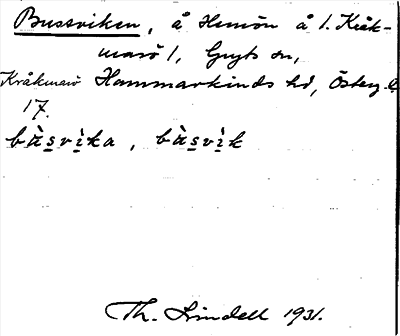 Bussviken, å Humön å l. Kråk-
marö 1, Gryts sn,
Kråkmarö Hammarkinds hd, Österg. l.
17.
bùsvìka, bùsvìk
Th. Lindell 1931.